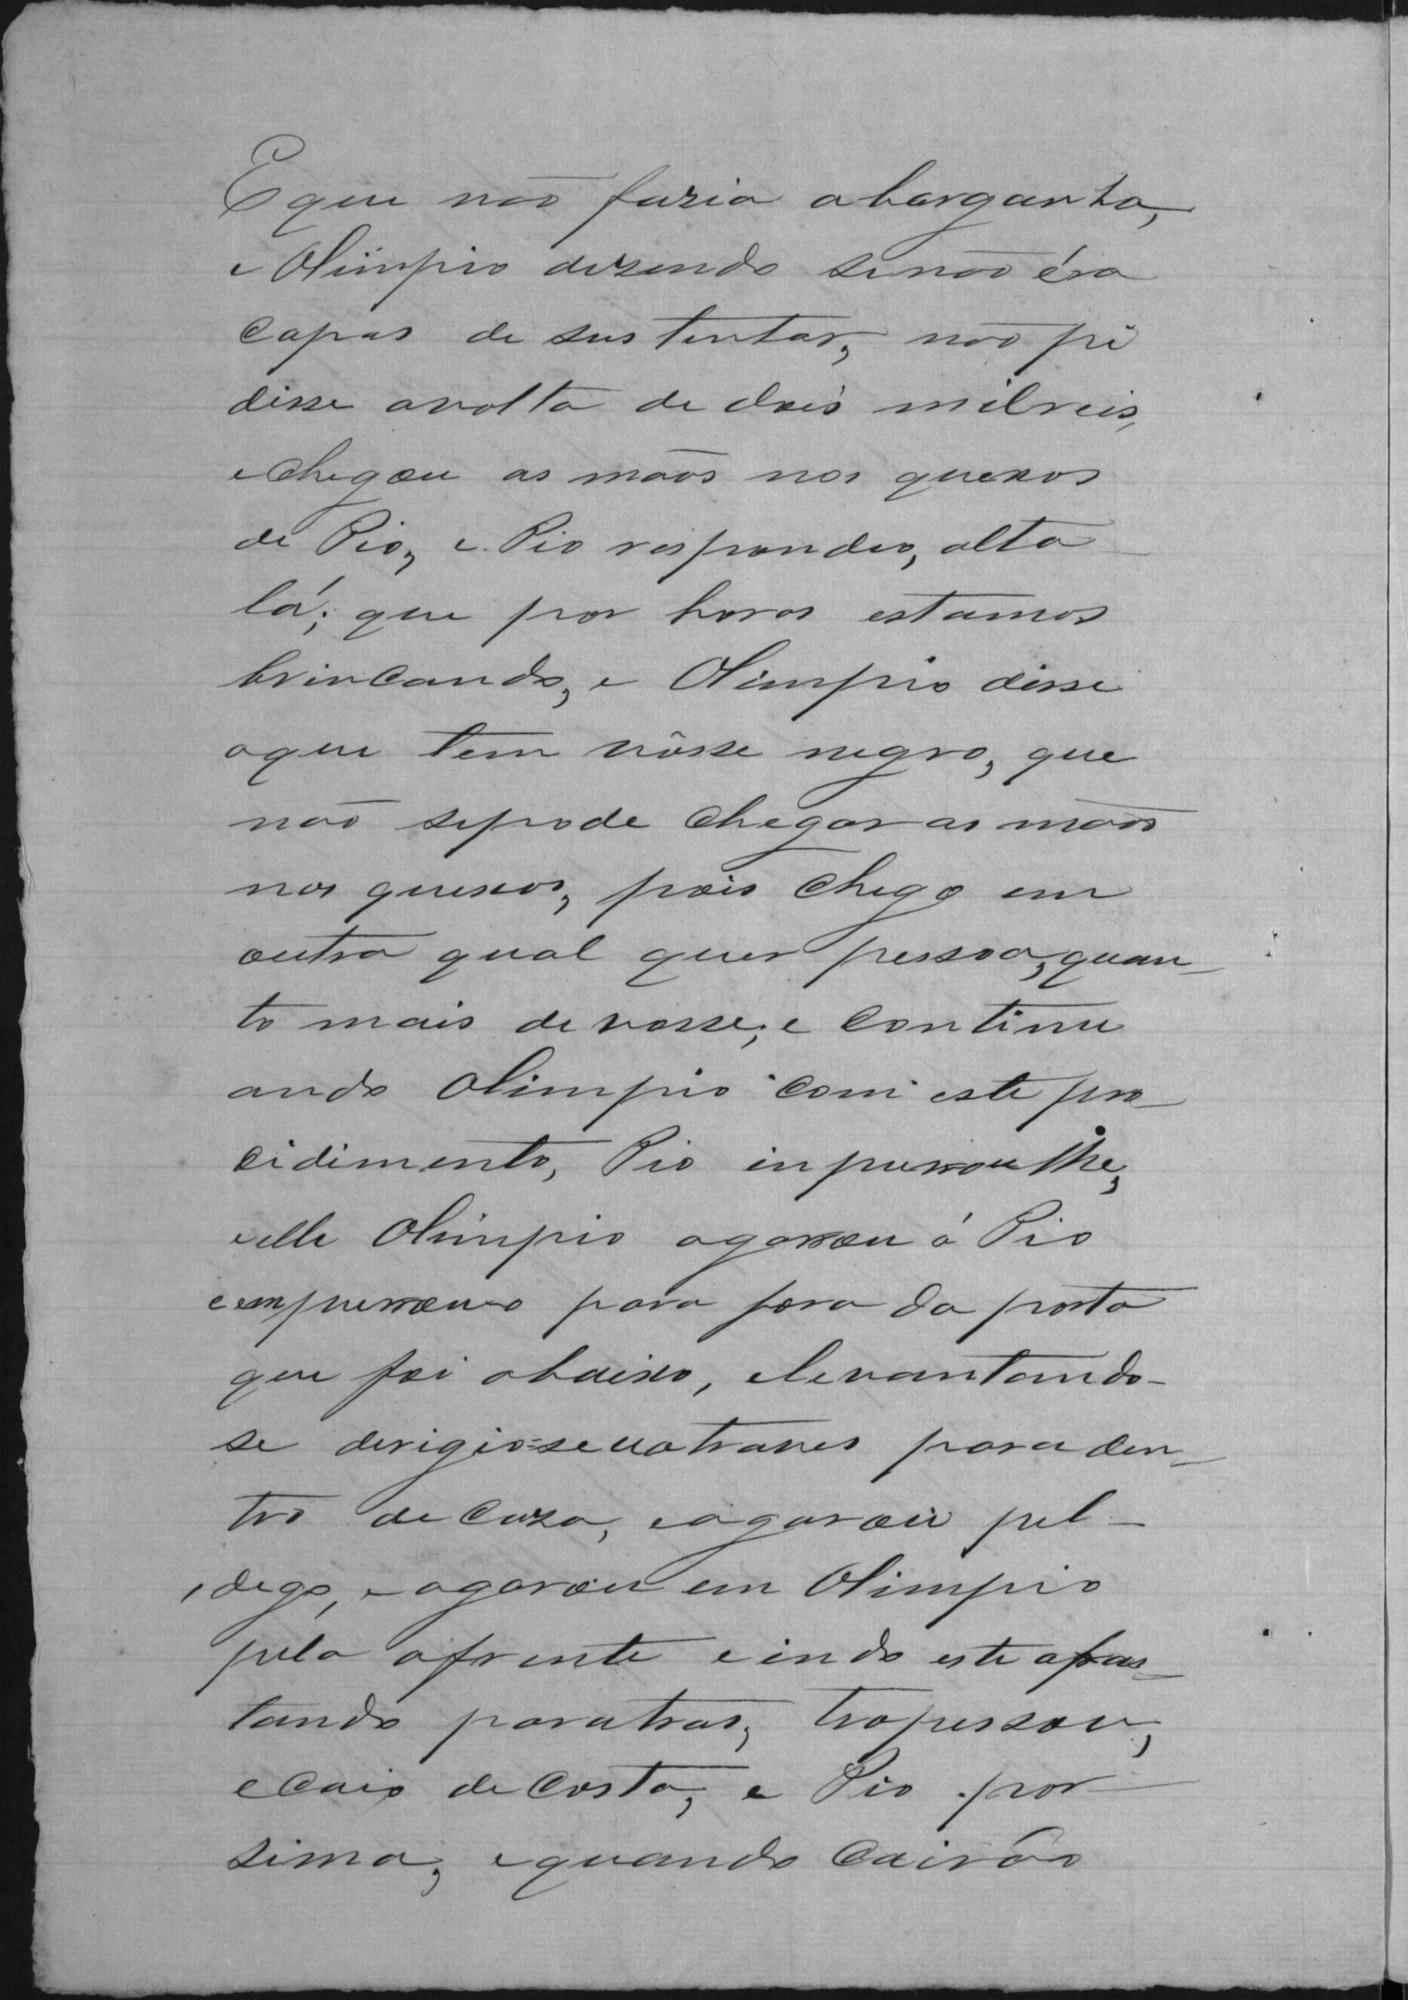 E que não fasia abarganha,
e Olimpio dizendo senão éra
capas de sustentar, não pi
disse avolta de dois milreis,
echegou as mãos nos quexos
de Pio, e Pio respondeo, alto
lá; que por horas estamos
brincando, e Olimpio disse
oque tem vósse negro, que
não sepode chegar as mãos
nos quexos, pois chego em
outra qual quer pessoa, quan-
to mais de vosse; e continu
ando Olimpio com este pro
cidimento, Pio inpurroulhe,
eelle Olimpio agarrou á Pio
eempurrouo para fora da porta
que foi abaixo, elevantando-
se derigio-se uatraves para den-
tro de caza, eagarou pel-
dego, e agarou em Olimpio
pela afrente e indo este afras-
tando paratras, tropessou,
e caio de costa, e Pio por
sima, equando cairão